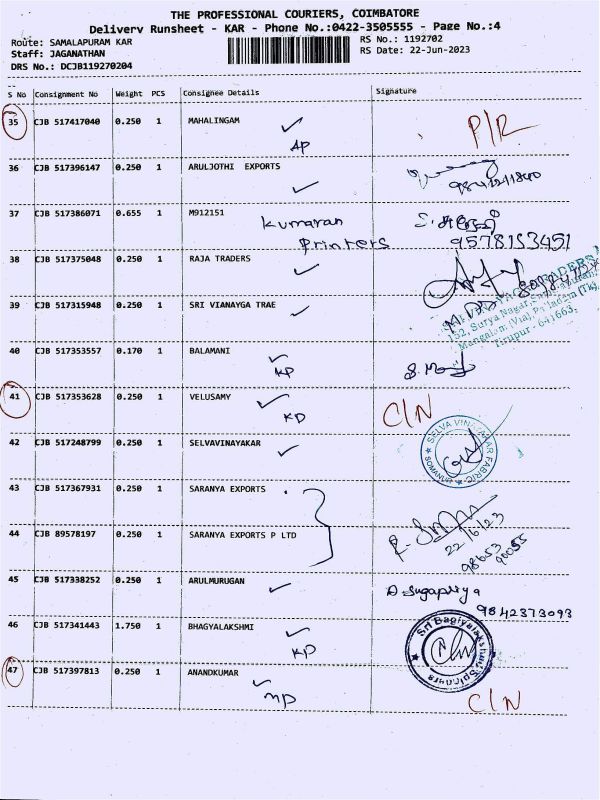 THE PROFESSIONAL COURIERS, COIMBATORE
Delivery Runsheet - KAR - Phone No.:0422-3505555 - Page No.:4
Route: SAMALAPURAM KAR
RS No.: 1192702
Staff: JAGANATHAN
RS Date: 22-Jun-2023
DRS No.: DCJB119270204
S No Consignment No Weight PCS Consignee Details Signature
35 CJB 517417040 0.250 1 MAHALINGAM
AP P/R
36 CJB 517396147 0.250 1 ARULJOTHI EXPORTS
37 CJB 517386071 0.655 1 M912151
Kumaran
Printers 9578193451
38 CJB 517375048 0.250 1 RAJA TRADERS
39 CJB 517315948 0.250 1 SRI VIANAYGA TRAE
132, Surya Nagar,
Mangalam (Via), Palladam (Tk),
Tirupur - 641663.
40 CJB 517353557 0.170 1 BALAMANI
KP
41 CJB 517353628 0.250 1 VELUSAMY C/N
KP
42 CJB 517248799 0.250 1 SELVAVINAYAKAR
SELVA VINAYAKAR FABRIC
43 CJB 517367931 0.250 1 SARANYA EXPORTS
22/6/23
44 CJB 89578197 0.250 1 SARANYA EXPORTS P LTD
98653
90055
45 CJB 517338252 0.250 1 ARULMURUGAN
D. Sugapriya
9842373093
46 CJB 517341443 1.750 1 BHAGYALAKSHMI
KP
47 CJB 517397813 0.250 1 ANANDKUMAR
MP C/N